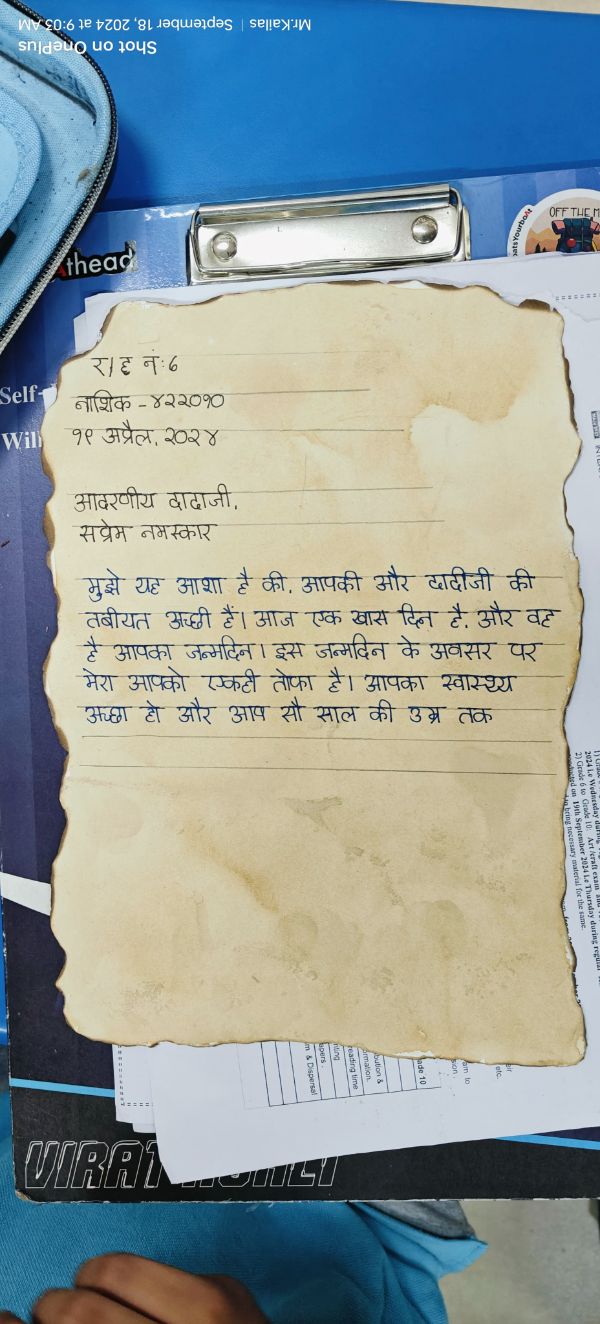 रा ह नं:६
नाशिक - ४२२०१०
१९ अप्रैल, २०२४
आदरणीय दादाजी,
सप्रेम नमस्कार
मुझे यह आशा है की, आपकी और दादीजी की
तबीयत अच्छी हैं। आज एक खास दिन है, और वह
है आपका जन्मदिन। इस जन्मदिन के अवसर पर
मेरा आपको एकही तोफा है। आपका स्वास्थ्य
अच्छा हो और आप सौ साल की उम्र तक
Shot on OnePlus
Mr.Kailas | September 18, 2024 at 9:03 AM
OFF THE M
atsYourboat
Athead
Self-
Will
VIRAT KOHLI
2024 i.e Wednesday during
2) Grade 6 to Grade 10: Art /craft exam and
conducted on 19th September 2024 i.e Thursday during regular
to bring necessary material for the same.
ade 10
bution &
rmation.
eading time
iting
apers .
m & Dispersal
am to
etc.